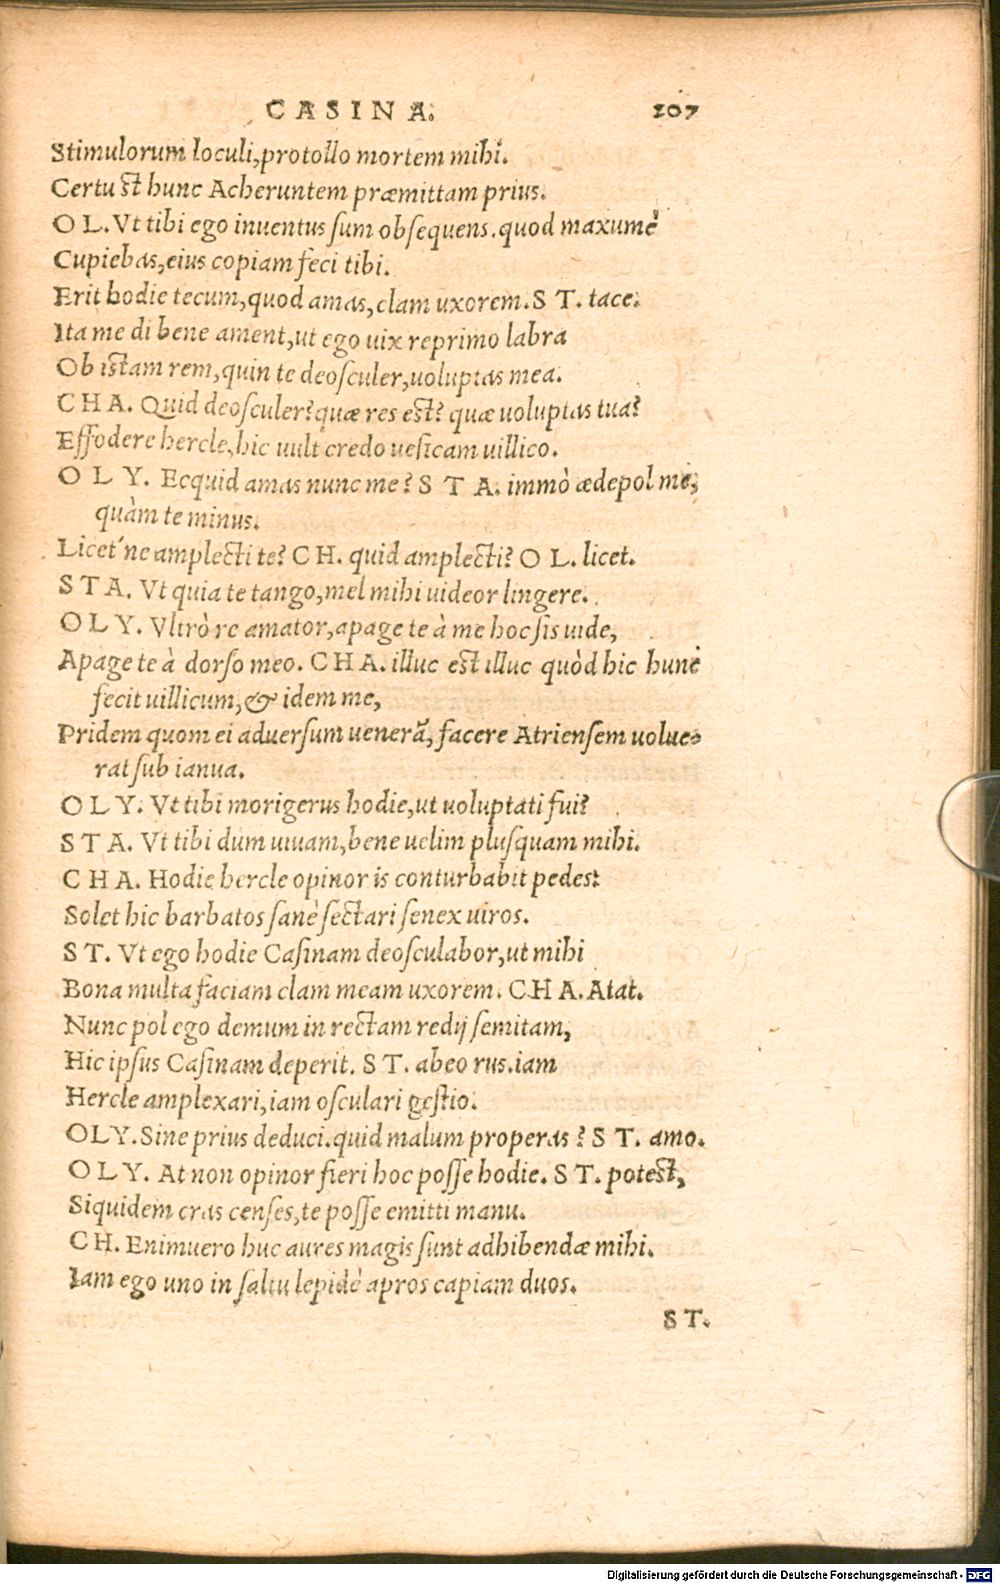 CASINA. 207
Stimulorum loculi, protollo mortem mihi.
Certu st hunc Acheruntem præmittam prius.
OL. Vt tibi ego inuentus sum obsequens. quod maxumè
Cupiebas, eius copiam feci tibi.
Erit hodie tecum, quod amas, clam uxorem. ST. tace.
Ita me di bene ament, ut ego uix reprimo labra
Ob istam rem, quin te deosculer, uoluptas mea.
CHA. Quid deosculer? quæ res est? quæ uoluptas tua?
Effodere hercle, hic uult credo uesicam uillico.
OLY. Ecquid amas nunc me? STA. immò ædepol me,
quàm te minus.
Licet'ne amplecti te? CH. quid amplecti? OL. licet.
STA. Vt quia te tango, mel mihi uideor lingere.
OLY. Vltrò te amator, apage te à me hoc sis uide,
Apage te à dorso meo. CHA. illuc est illuc quòd hic hunc
fecit uillicum, & idem me,
Pridem quom ei aduersum uenerã, facere Atriensem uolue-
rat sub ianua.
OLY. Vt tibi morigerus hodie, ut uoluptati fui?
STA. Vt tibi dum uiuam, bene uelim plusquam mihi.
CHA. Hodie hercle opinor is conturbabit pedes:
Solet hic barbatos sanè sectari senex uiros.
ST. Vt ego hodie Casinam deosculabor, ut mihi
Bona multa faciam clam meam uxorem. CHA. Atat.
Nunc pol ego demum in rectam redij semitam,
Hic ipsus Casinam deperit. ST. abeo rus. iam
Hercle amplexari, iam osculari gestio.
OLY. Sine prius deduci. quid malum properas? ST. amo.
OLY. At non opinor fieri hoc posse hodie. ST. potest,
Siquidem cras censes, te posse emitti manu.
CH. Enimuero huc aures magis sunt adhibendæ mihi.
Iam ego uno in saltu lepidè apros capiam duos.
ST.
Digitalisierung gefördert durch die Deutsche Forschungsgemeinschaft - DFG